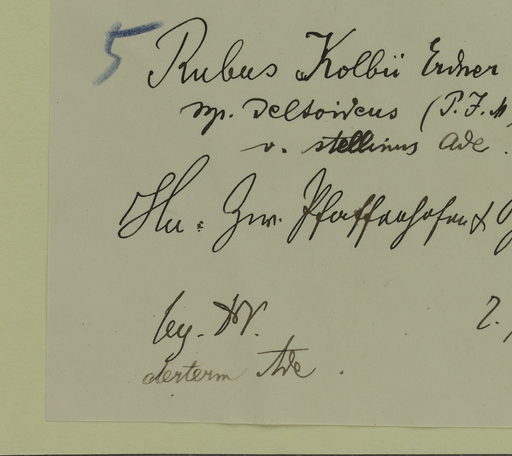 5 Rubus Kolbii Erdner
ssp. deltoideus (P.J.M
v. stellinus Ade.
Zw. Pfaffenhofen &
leg.
determ Ade.